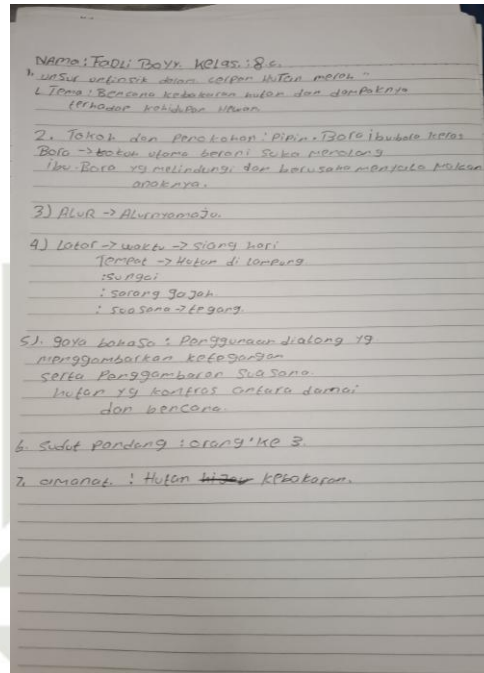 NAMA : FaDLi Bayy. Kelas. : 8 c.
1. unsur untinsik dalam cerpen HuTan merah "
1. Tema : Bencana kebakaran hutan dan dampaknya
terhadap kehidupan Hewan.
2. Tokoh dan Penokohan : Pipin. Bora ibu bora keras
Boro -> tokoh utama berani suka menolong
ibu. Bora yg melindungi dan berusaha
anaknya.
3) ALuR -> ALurnya maju.
4) Lator -> waktu -> siang hari
Tempat -> Hutan di Lampung
: sungai
: sarang gajah.
: suasana -> tegang.
5). gaya bahasa : Penggunaan dialong yg
menggambarkan ketegangan
serta Panggambaran suasana.
hutan yg kontras antara damai
dan bencana.
6. Sudut pandang : orang' ke 3.
7. amanat. : Hutan kebakaran.